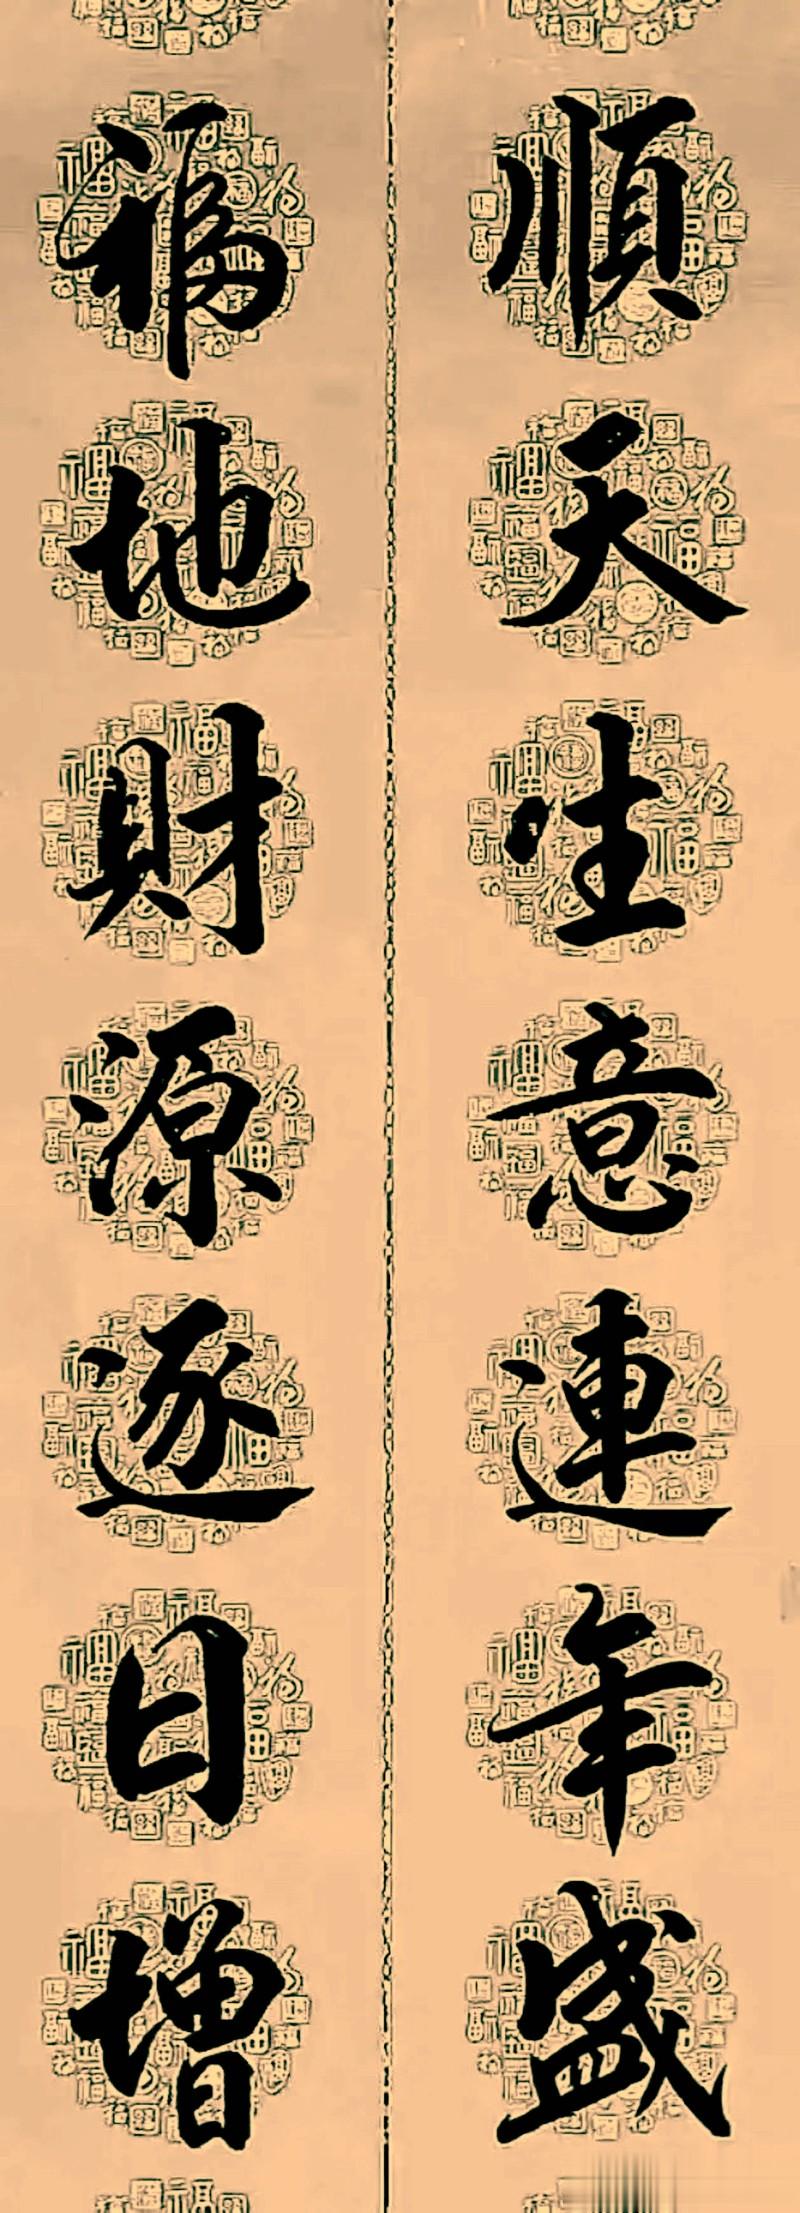 順天生意連年盛
福地財源逐日增